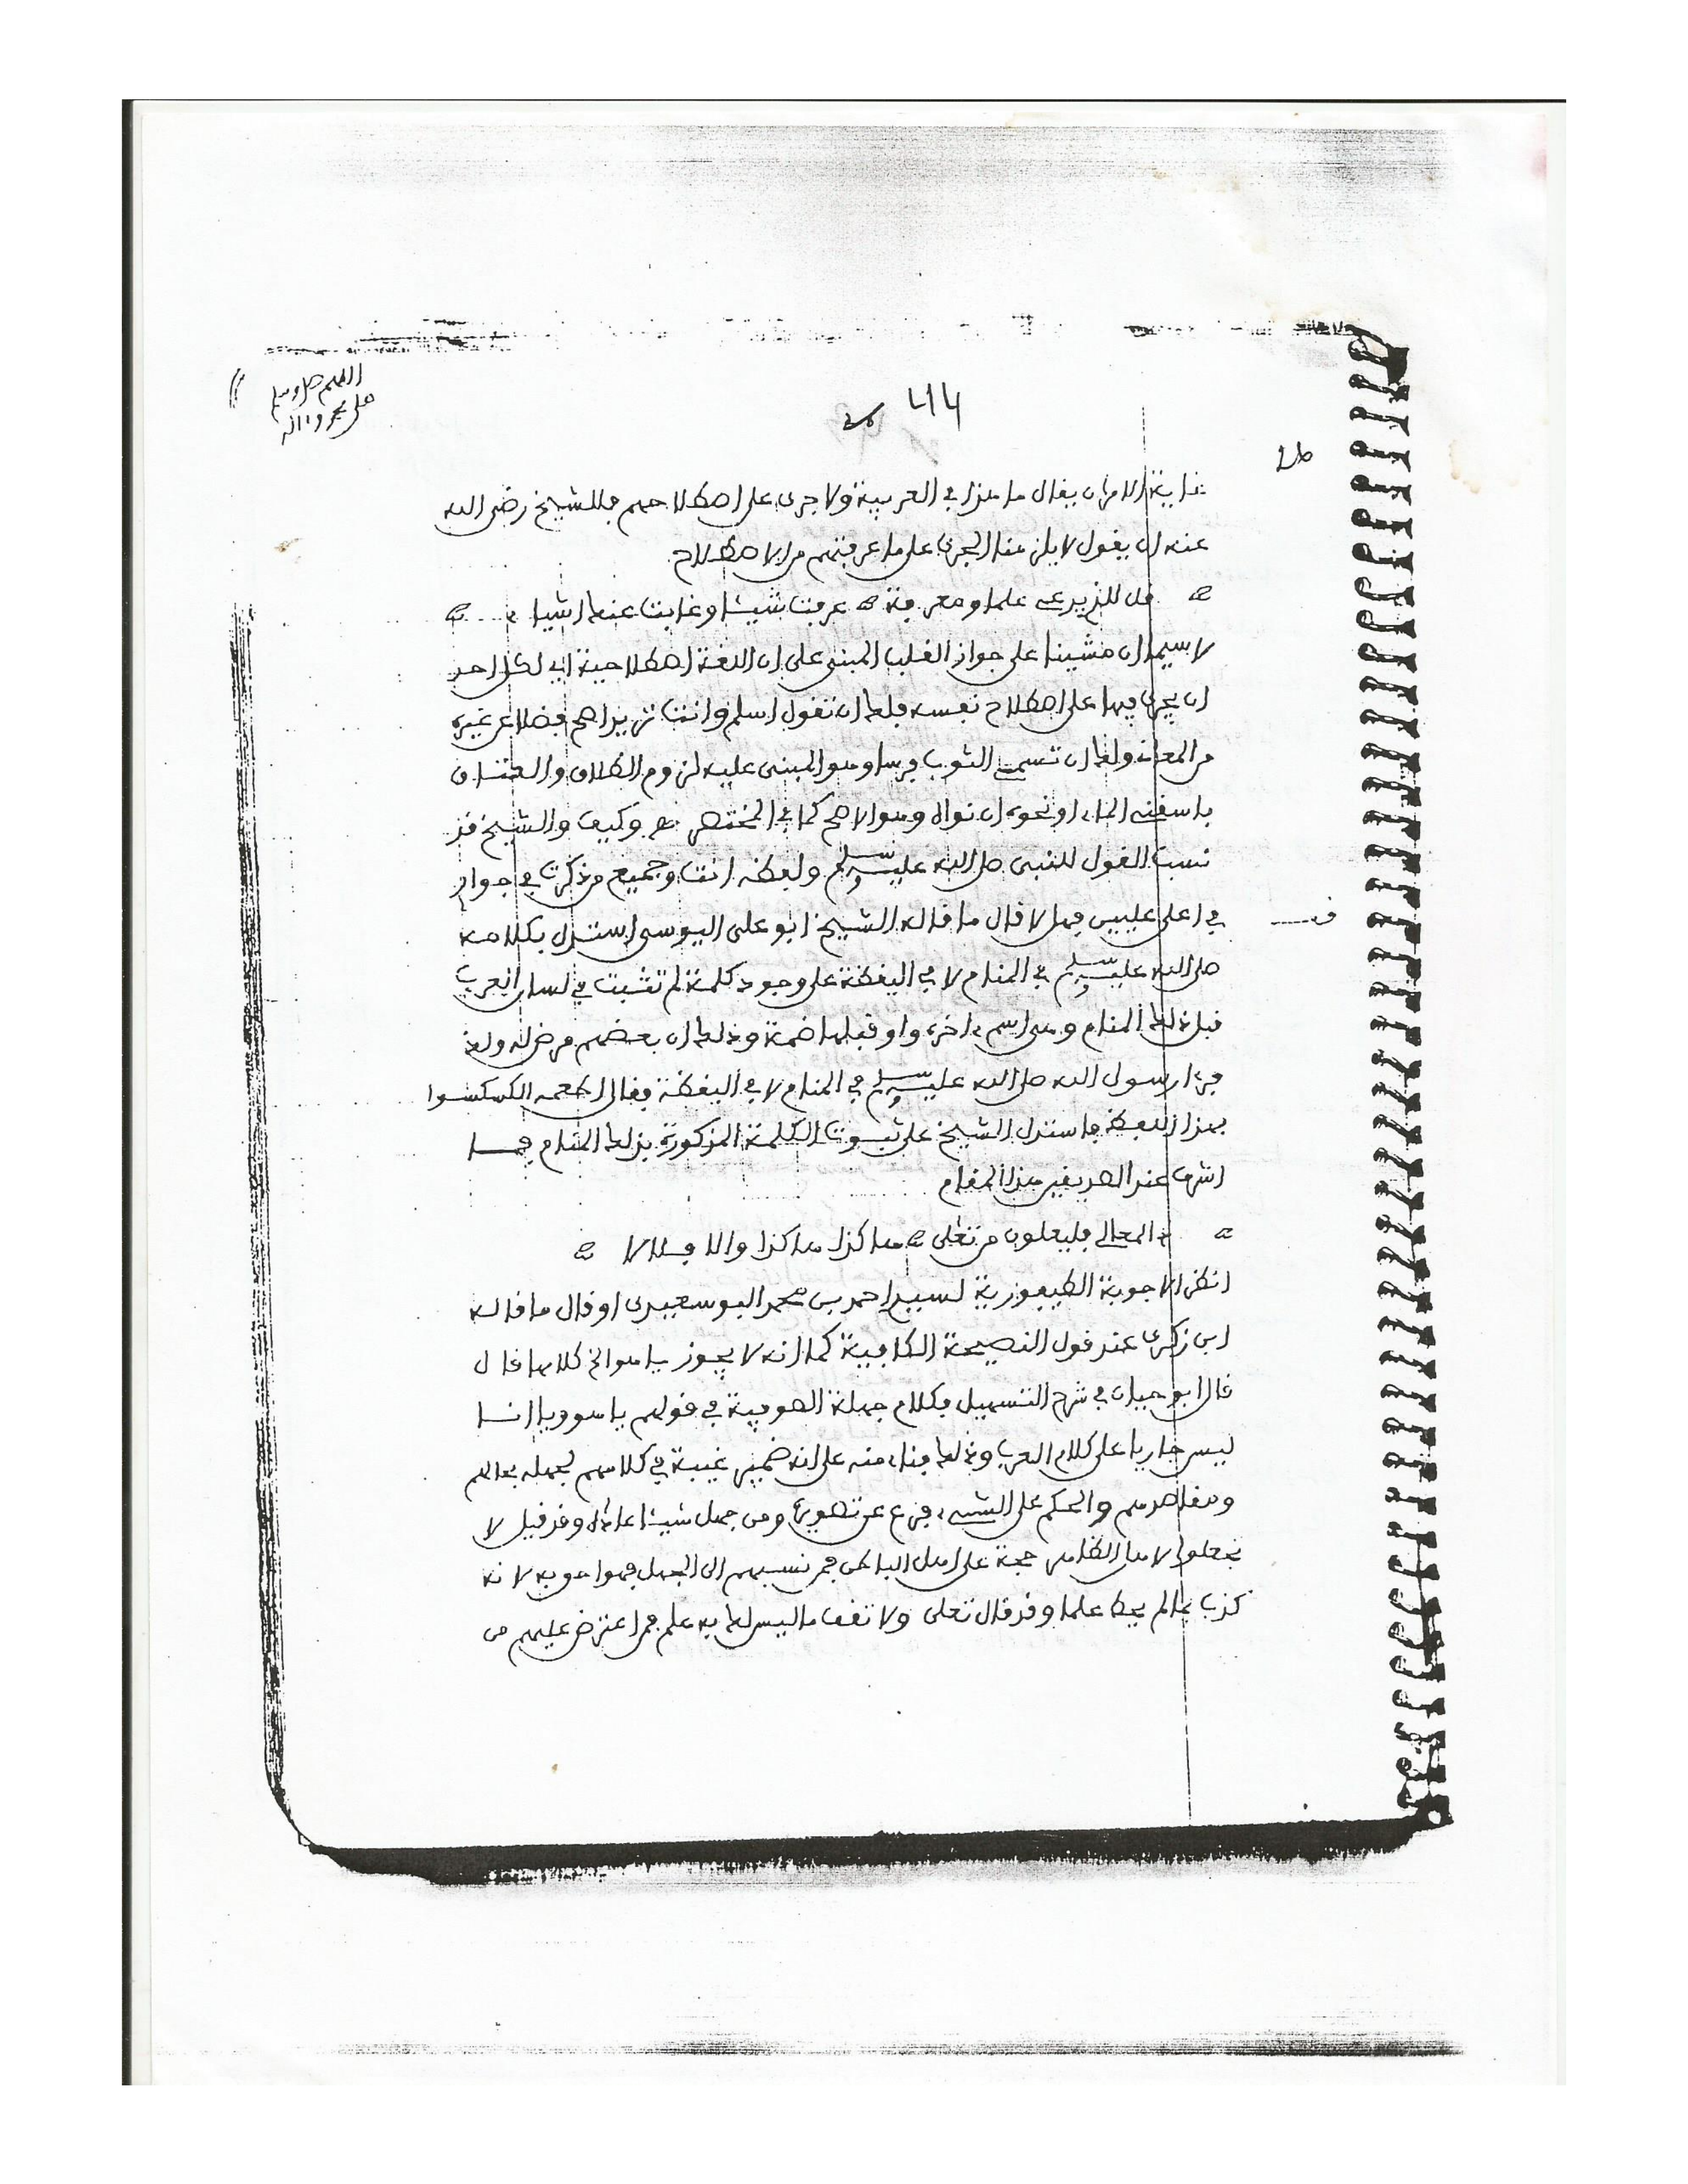 اللهم صل وسلم
على محمد وءاله
414
26
غاية الامر ان يقال ما هذا في العربية ولا جرى على اصطلاحهم فللشيخ رضى الله
عنه ان يقول لا يلزمنا الجرى على ما عرفتهم من الاصطلاح
قل للذي يدعى علما ومعرفة عرفت شيئا وغابت عنك اشياء
لا سيما ان مشينا على جواز القلب المبنى على ان اللغة اصطلاحية اي لكل احد
ان يجرى فيها على اصطلاح نفسه فلك ان تقول اسلم وانت تريد اهم فضلا عن غيره
من المعان ولك ان تسمى الثوب فرسا وهو المبنى عليه لزوم الطلاق والعتاق
باسقنى الماء او نحوه ان نواه وهو الاصح كما في المختصر وكيف والشيخ قد
نسب القول للنبى صلى الله عليه وسلم ولعظه انت وجميع من ذكرت في جوارى
في اعلى عليين فهلا قال ما قاله الشيخ ابو على اليوسى استدل بكلامه
صلى الله عليه وسلم في المنام لا في اليقظة على وجود كلمة لم تثبت في لسان العرب
قبل ذلك المنام وهى اسم ءاخره واو قبلها ضمة وذلك ان بعضهم مرض له ولد
فرءا رسول الله صلى الله عليه وسلم في المنام لا في اليقظة فقال اطعمه الكسكسوا
بهذا اللفظ فاستدل الشيخ على ثبوت الكلمة المذكورة بذلك المنام فما
اشرف عند الصديقين هذا المقام
المعالي فليعلون من تعلى هاكذا هاكذا والا فلا لا
انظر الاجوبة الطيفورية لسيد احمد بن محمد البوسعيدى او قال ما قاله
ابن زكرى عند قول النصيحة الكافية كما انه لا يجوز ياهوا الخ كلامها قال
قال ابو حيان في شرح التسهيل وكلام جهلة الصوفية في قولهم ياهو ويا انا
ليس جاريا على كلام العرب وذلك بناء منه على انه ضمير غيبة في كلامهم لجهله بحالهم
ومقاصدهم والحكم على الشىء فرع عن تصوره ومن جهل شيئا عاداه وقد قيل لا
تجعلوا لاهل الظاهر حجة على اهل الباطن فمن نسبهم الى الجهل فهوا حو به لانه
كذب بما لم يحط علما وقد قال تعلى ولا تقف ما ليس لك به علم فمن اعترض عليهم من